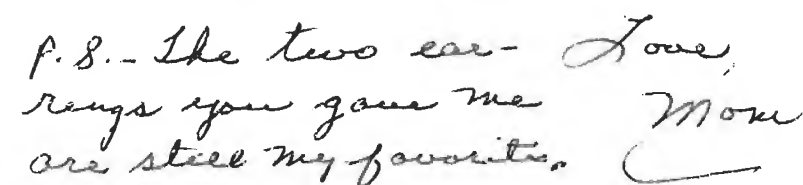 P.S.- The two ear-
rings you gave me
are still my favorite.
Love,
Mom